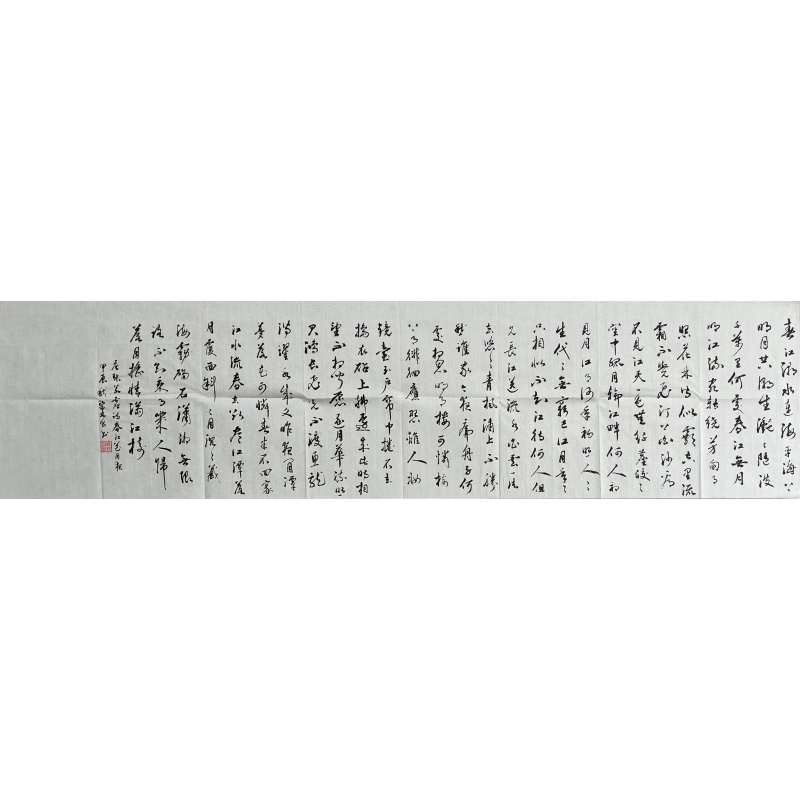 春江潮水連海平海上
明月共潮生灔々隨波
千萬里何處春江無月
明江流宛轉繞芳甸月
照花林皆似霰空里流
霜不覺飛汀上白沙看
不見江天一色無纖塵皎々
空中孤月輪江畔何人初
見月江月何年初照人々
生代々無窮已江月年々
只相似不知江待何人但
見長江送流水白雲一片
去悠々青楓浦上不勝
愁誰家今夜扁舟子何
處相思明月樓可憐樓
上月徘徊應照離人妝
鏡臺玉戶簾中捲不去
搗衣砧上拂還來此時相
望不相聞願逐月華流照
君鴻雁長飛光不渡魚龍
潛躍水成文昨夜閒潭
夢落花可憐春半不回家
江水流春去欲盡江潭落
月復西斜々月沉々藏
海霧碣石瀟湘無限
路不知乘月幾人歸
落月搖情滿江樹
唐張若虛詩春江花月夜
甲辰秋 書